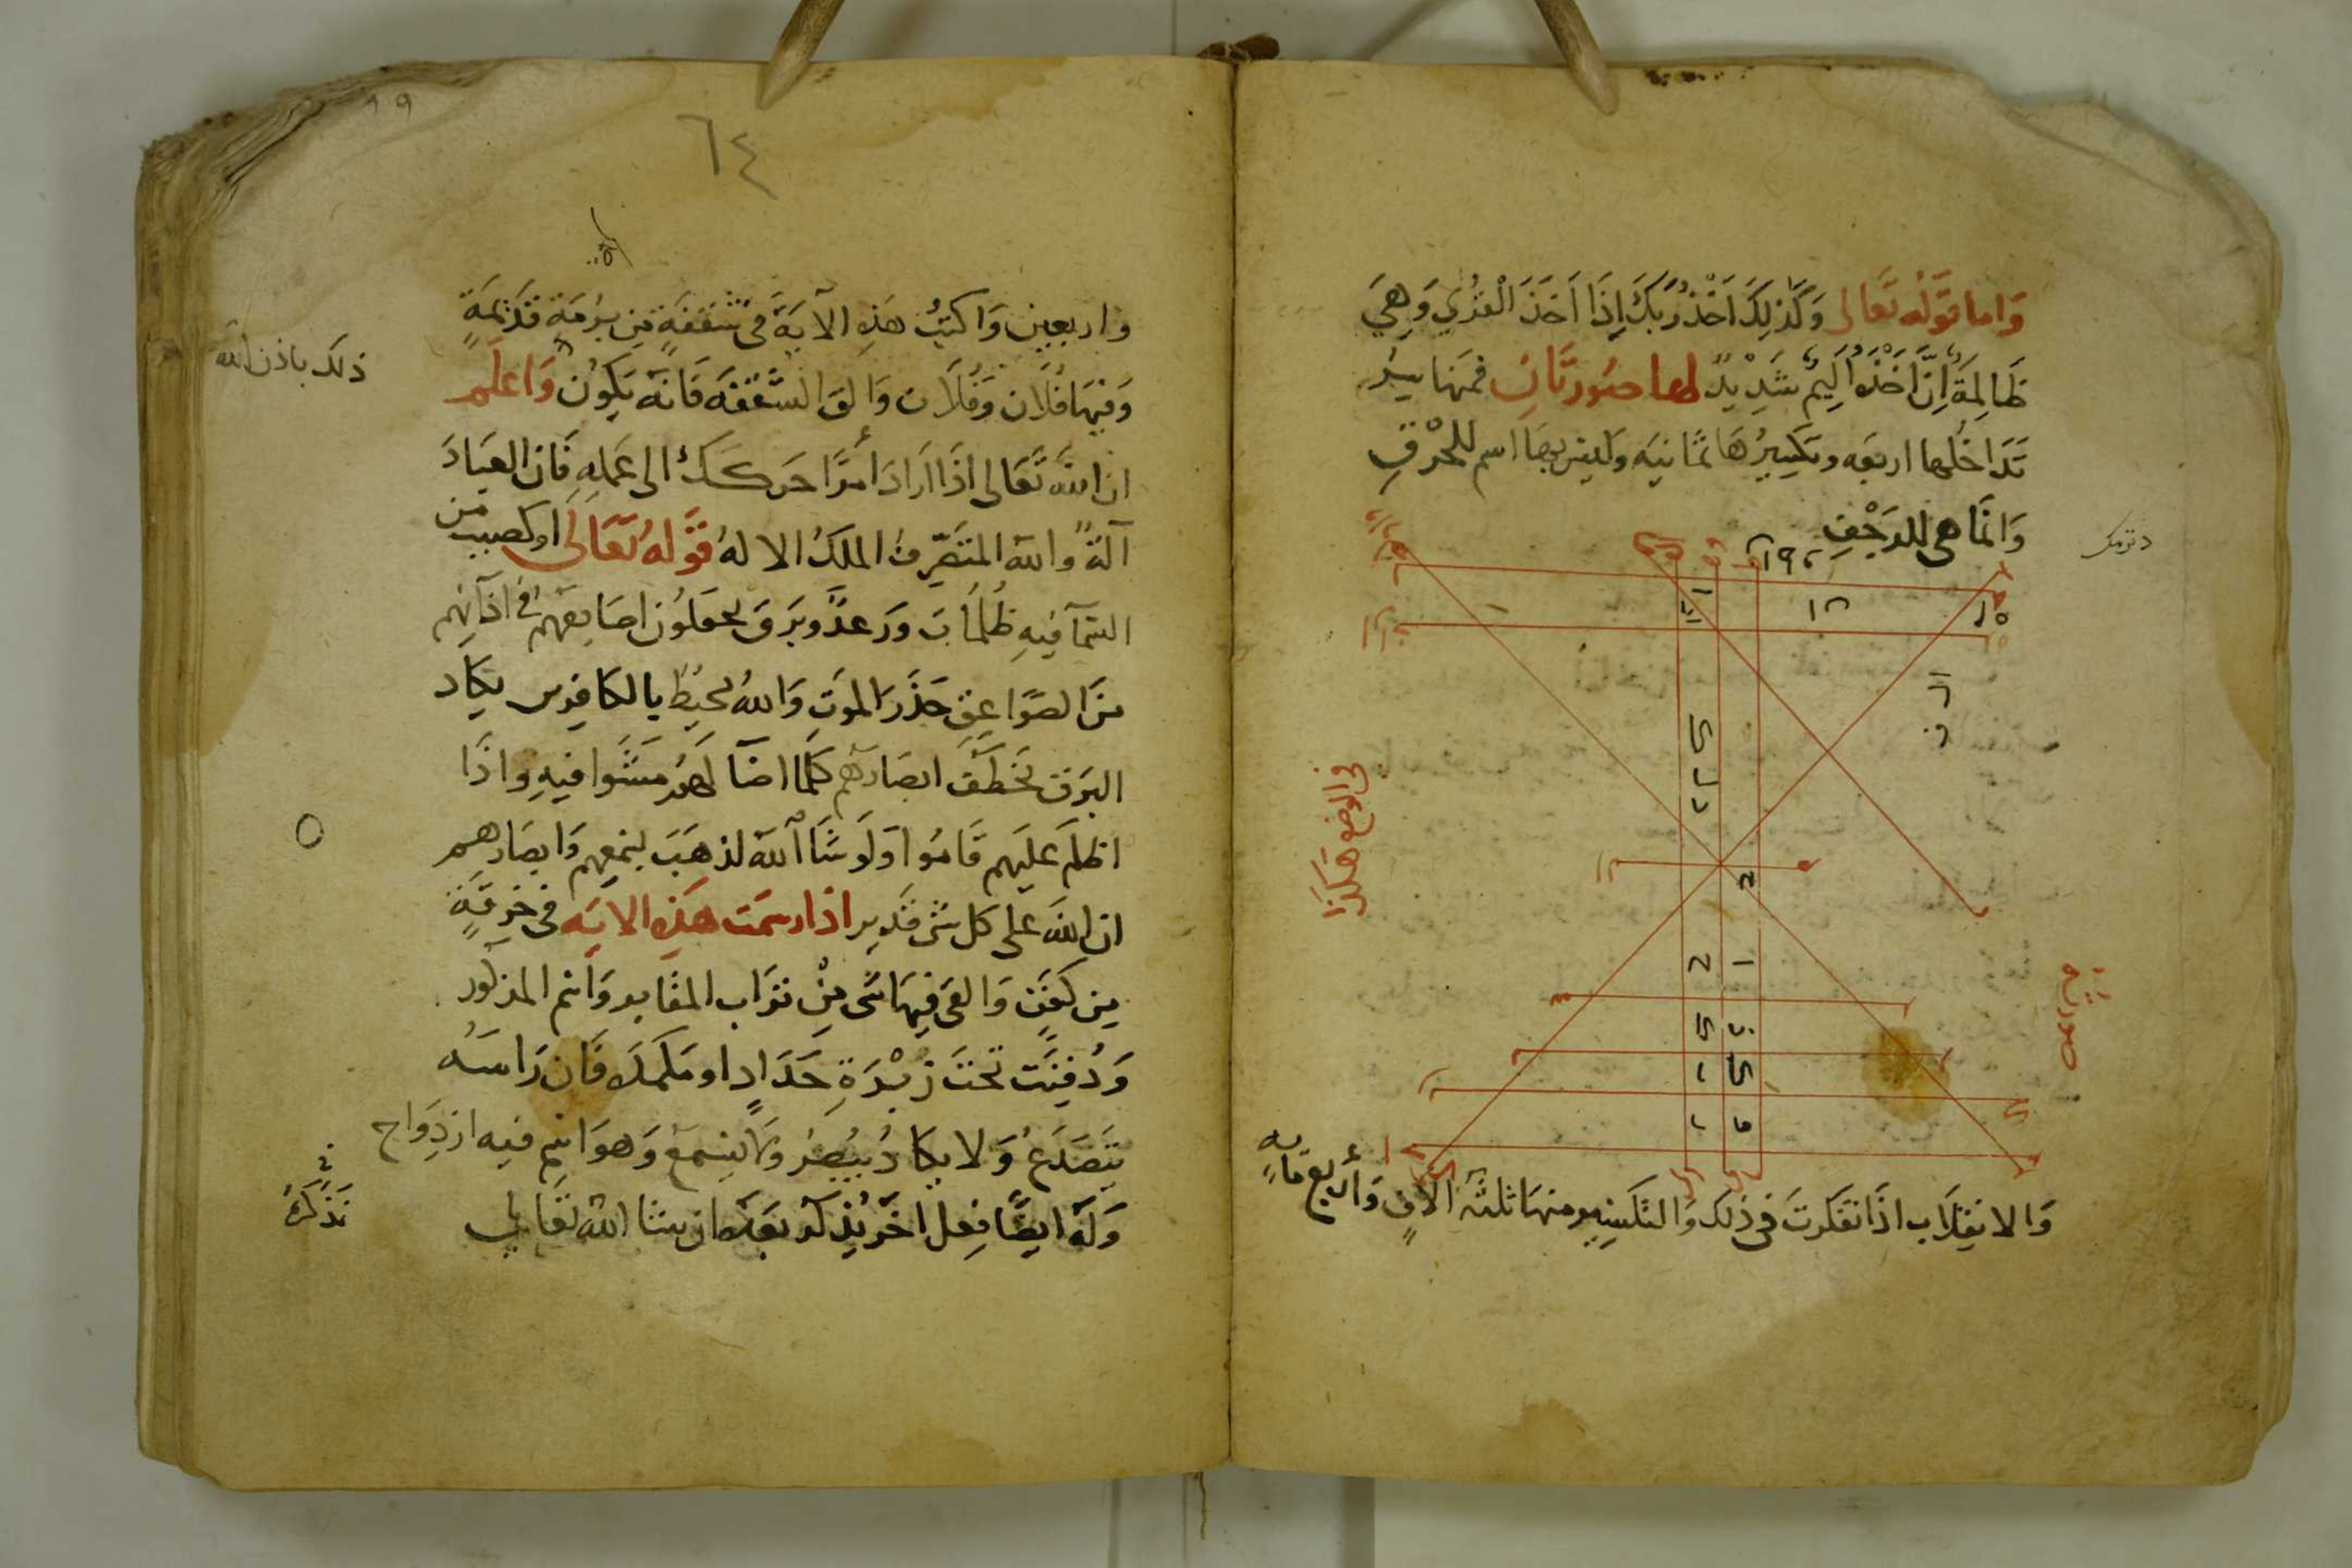 واما قوله تعالى وكذلك اخذ ربك اذا اخذ القرى وهي
ظالمة ان اخذه اليم شديد لها صورتان فمنها
تداخلها اربعه وتكسيرها ثمانيه وليس بها اسم للحرق
وانما هي للرجف
في الوضع هكذا
صورة
والانقلاب اذا تفكرت في ذلك والتكسير منها ثلثة الاف واربع مايه
٦٤
١٩
واربعين واكتب هذه الاية في شقفة من برمة قديمة
وفيها فلان وفلان والق الشقفه فانه يكون واعلم
ذلك باذن الله
ان الله تعالى اذا اراد امرا حركك الى عمله فان العباد
آلة والله المتصرف الملك الا له قوله تعالى او كصيب من
السما فيه ظلمات ورعد وبرق يجعلون اصابعهم في اذانهم
من الصواعق حذر الموت والله محيط بالكافرين يكاد
البرق يخطف ابصارهم كلما اضا لهم مشوا فيه واذا
اظلم عليهم قاموا ولو شا الله لذهب بسمعهم وابصارهم
ان الله على كل شي قدير اذا رسمت هذه الايه في خرقة
من كفن والقى فيها شي من تراب المقابر واسم المذكور
ودفنت تحت زبرة حداد او فان راسه
يتصدع ولا يكاد يبصر ولا يسمع وهو اسم فيه ازدواج
وله ايضا فعل اخر يذكر بعد ان شا الله تعالى
نذكره